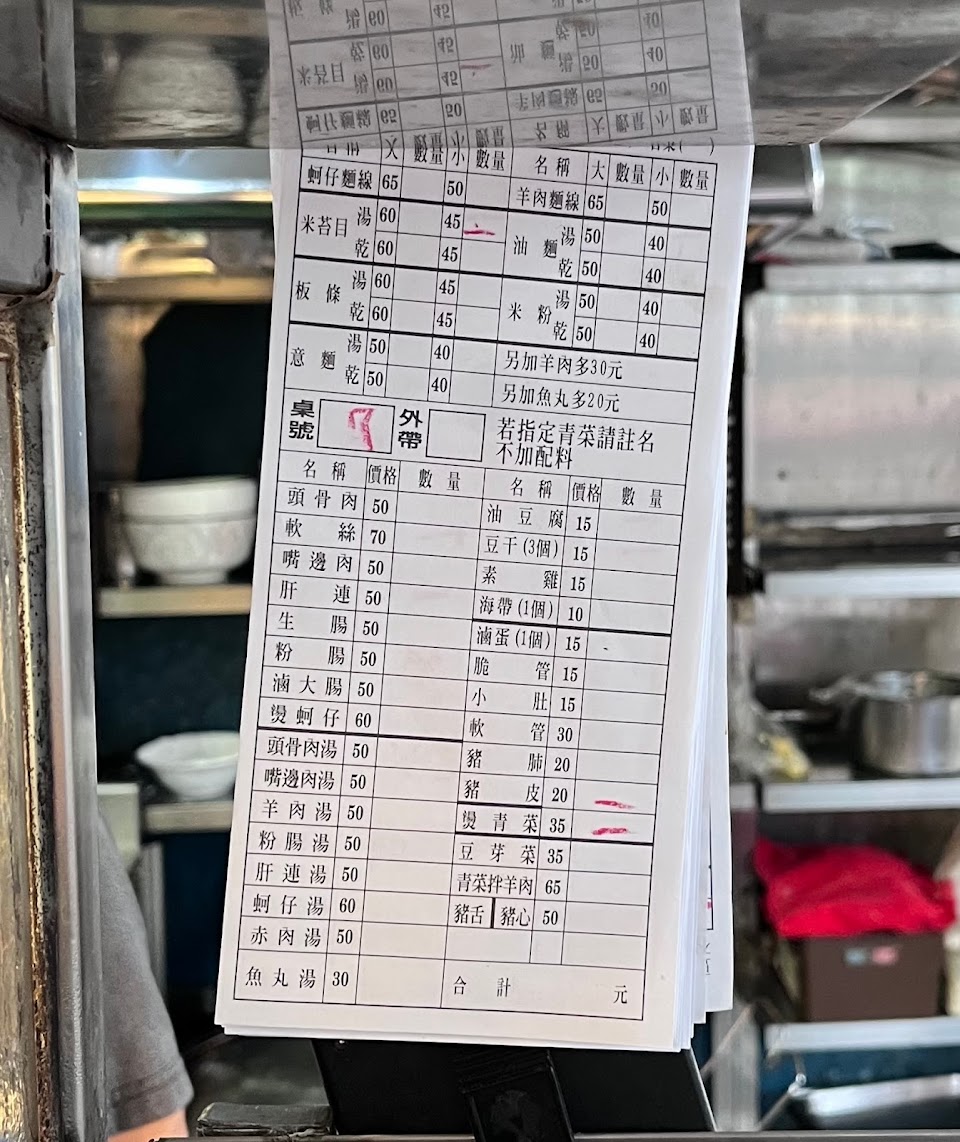 名稱 大 數量 小 數量 名稱 大 數量 小 數量
蚵仔麵線 65 50 羊肉麵線 65 50
米苔目 湯 60 45 一 油麵 湯 50 40
乾 60 45 乾 50 40
板條 湯 60 45 米粉 湯 50 40
乾 60 45 乾 50 40
意麵 湯 50 40 另加羊肉多30元
乾 50 40 另加魚丸多20元
桌號 外帶 若指定青菜請註名
不加配料
名稱 價格 數量 名稱 價格 數量
頭骨肉 50 油豆腐 15
軟絲 70 豆干(3個) 15
嘴邊肉 50 素雞 15
肝連 50 海帶(1個) 10
生腸 50 滷蛋(1個) 15
粉腸 50 脆管 15
滷大腸 50 小肚 15
燙蚵仔 60 軟管 30
頭骨肉湯 50 豬肺 20
嘴邊肉湯 50 豬皮 20 一
羊肉湯 50 燙青菜 35 一
粉腸湯 50 豆芽菜 35
肝連湯 50 青菜拌羊肉 65
蚵仔湯 60 豬舌 豬心 50
赤肉湯 50
魚丸湯 30 合計 元